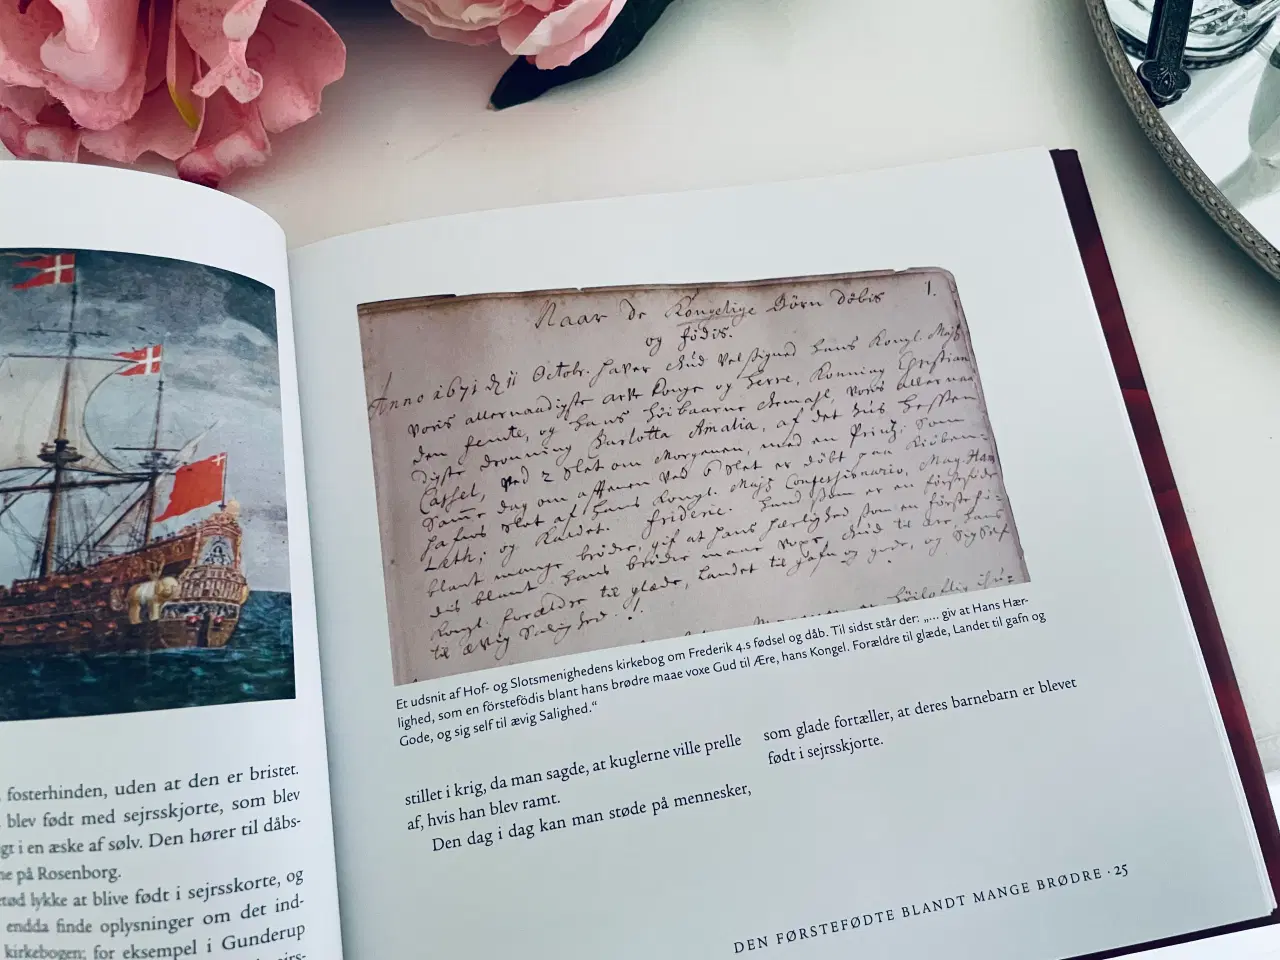 fosterhinden, uden at den er bristet.
blev født med sejrsskjorte, som blev
gt i en æske af sølv. Den hører til dåbs-
ne på Rosenborg.
lykke at blive født i sejrsskorte, og
endda finde oplysninger om det ind-
kirkebogen; for eksempel i Gunderup
Naar De Kongelige Börn döbis 1.
og födis.
Anno 1671 d. 11 Octobr. haver Gud velsignet hans Kongl. Majs
voris allernaadigste arfve Konge og Herre, Konning Christian
den femte, og hans höibaarne Gemahl, voris allernaa
digste Dronning Charlotta Amalia, af det huus Hessen
Cassel, ved 2 slet om Morgenen, med en Printz: Som
Samme dag om afftenen ved 6 slet er döbt paa Kiöben-
hafns slot af hans Kongl. Majs Confessionario, Mag. Hans
Leth; og Kaldet. Frideric. Gud
blant mange brödre, gif at hans herlighed som en förstefö-
dis blant hans brödre maae voxe Gud til ære, hans
Kongl. forældre til glæde, Landet til gafn og gode, og Sig Self
til ævig Salighed.
Et udsnit af Hof- og Slotsmenighedens kirkebog om Frederik 4.s fødsel og dåb. Til sidst står der: „... giv at Hans Hær-
lighed, som en förstefödis blant hans brødre maae voxe Gud til Ære, hans Kongel. Forældre til glæde, Landet til gafn og
Gode, og sig self til ævig Salighed.“
stillet i krig, da man sagde, at kuglerne ville prelle
af, hvis han blev ramt.
Den dag i dag kan man støde på mennesker,
som glade fortæller, at deres barnebarn er blevet
født i sejrsskjorte.
DEN FØRSTEFØDTE BLANDT MANGE BRØDRE · 25